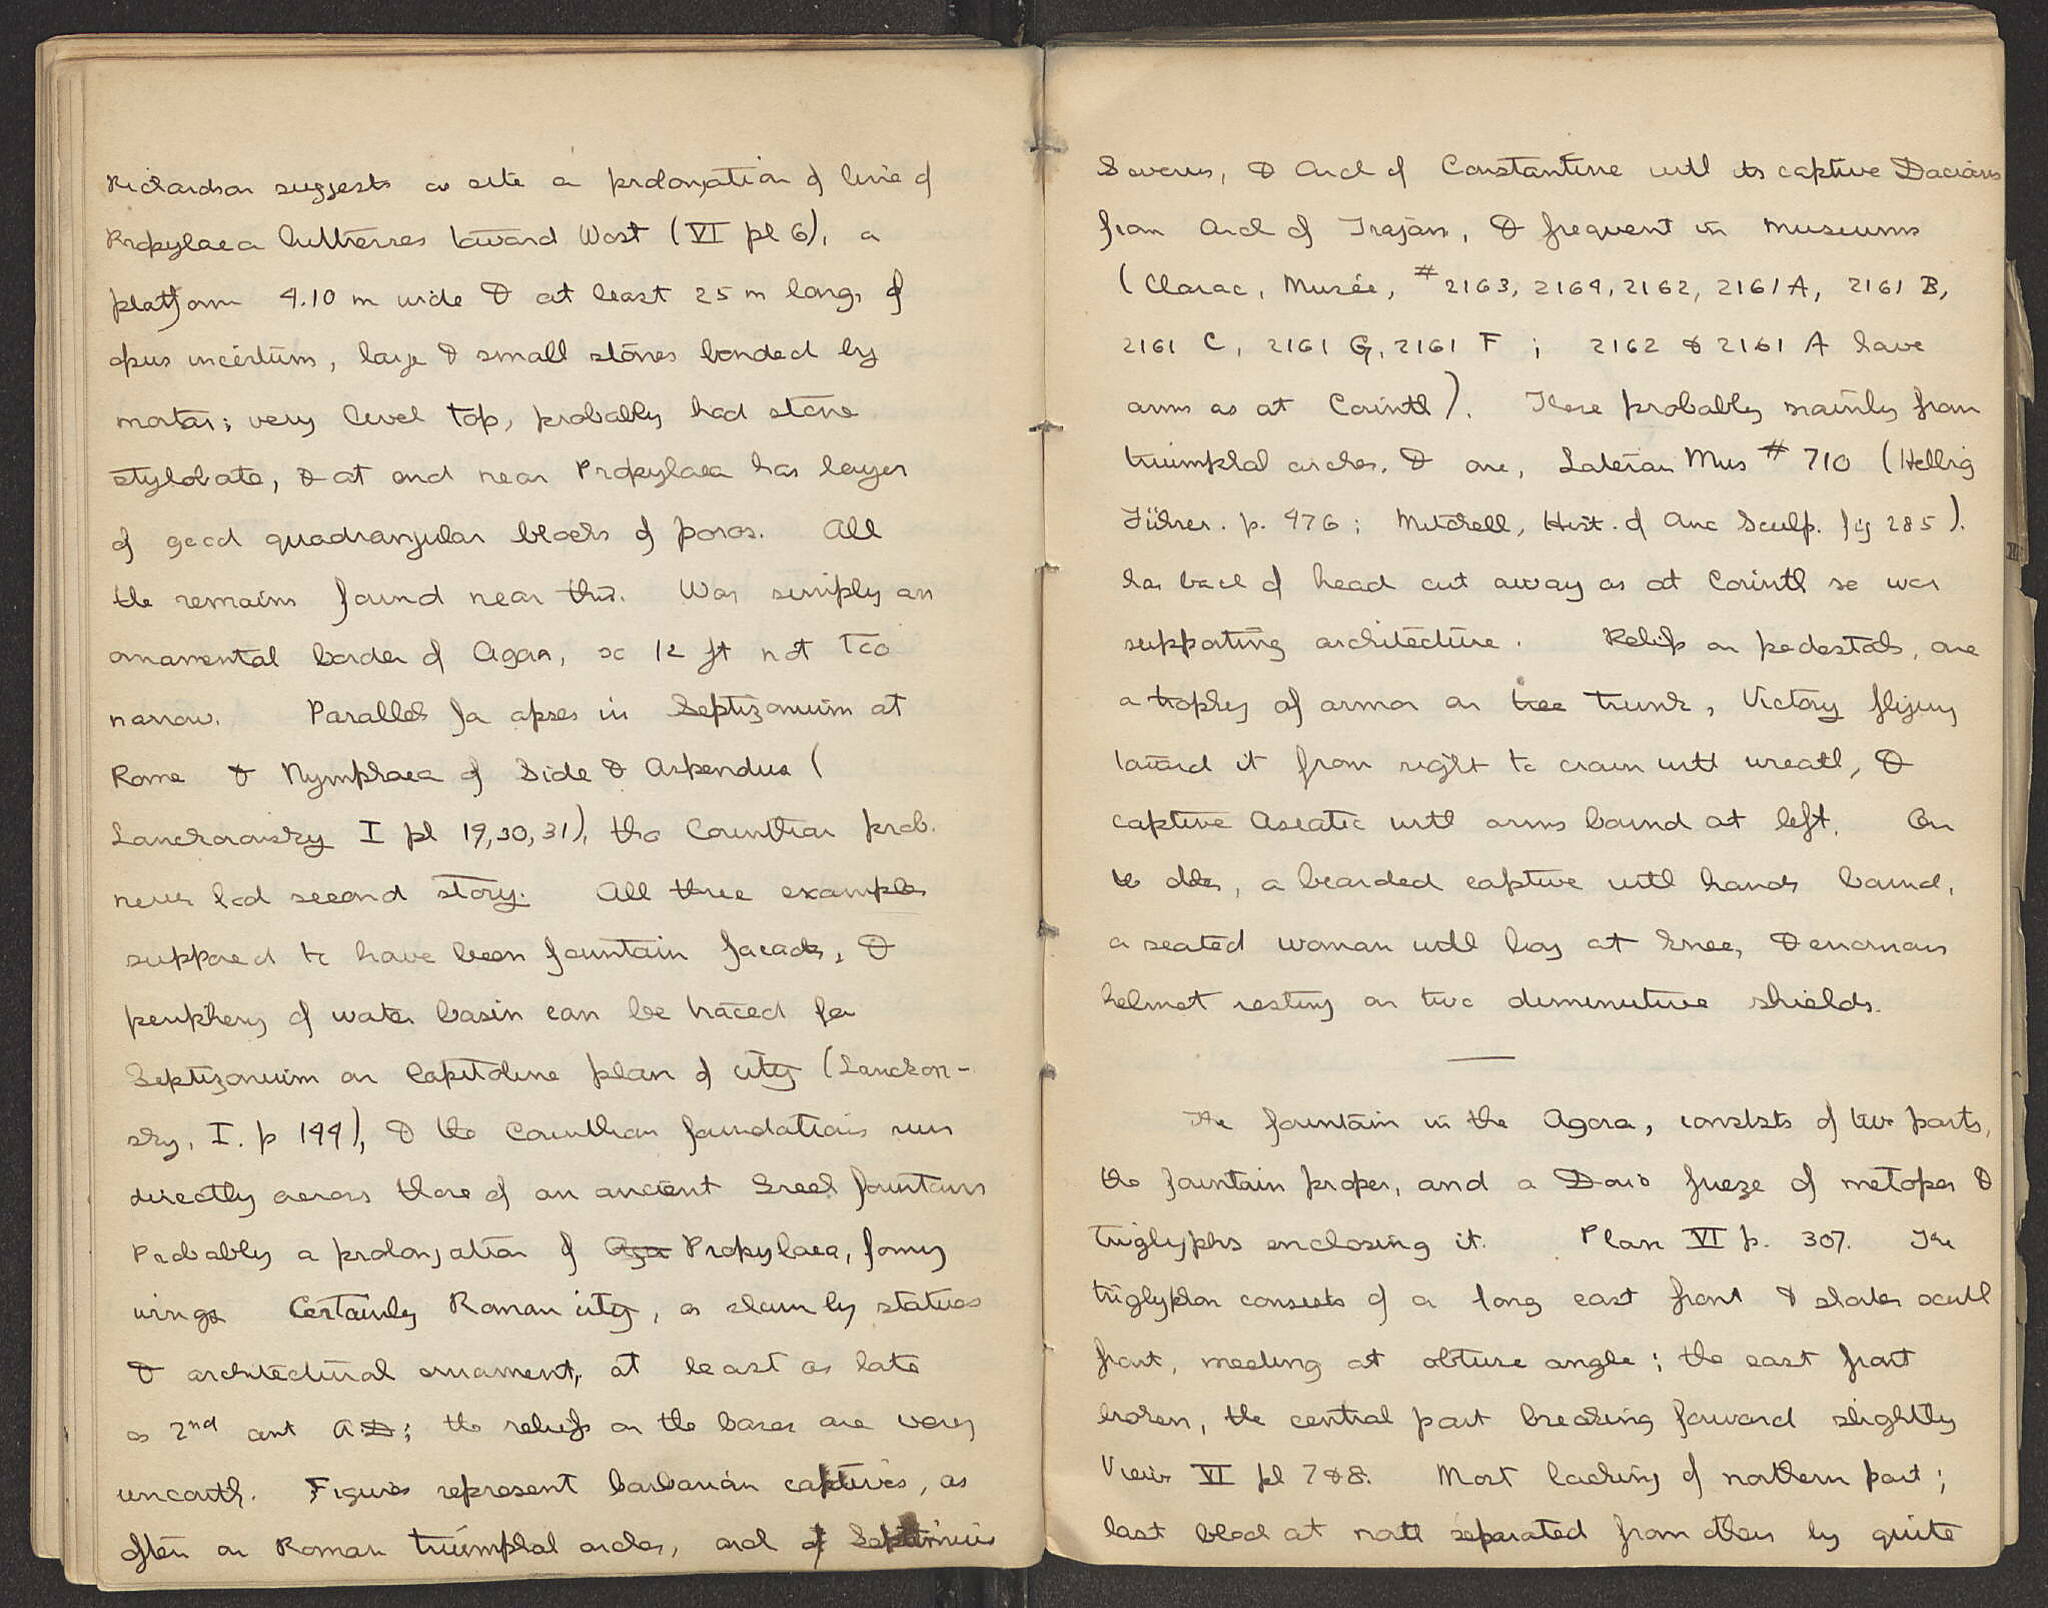 Richardson suggests as site a prolongation of line of
Propylaea buttresses toward West (VI pl 6), a
platform 4.10 m wide & at least 25 m long, of
opus incertum, large & small stones bonded by
mortar; very level top, probably had stone
stylobate, & at end near Propylaea has layer
of good quadrangular blocks of poros. All
the remains found near this. Was simply an
ornamental border of Agora, so 12 ft not too
narrow. Parallels for apses in Septizonium at
Rome & Nymphaea of Side & Aspendus (
Lanckoronsky I pl 19, 30, 31), tho Corinthian prob.
never had second story. All three examples
supposed to have been fountain facades, &
periphery of water basin can be traced for
Septizonium on Capitoline plan of city (Lanckoron-
sky, I. p 144), & the Corinthian foundations run
directly across those of an ancient Greek fountain
Probably a prolongation of Aga Propylaea, formg
wings Certainly Roman city, as shown by statues
& architectural ornament, at least as late
as 2nd cent A.D; the reliefs on the bases are very
uncouth. Figures represent barbarian captives, as
often on Roman triumphal arches, arch of Septimius
Severus, & Arch of Constantine with its captive Dacians
from Arch of Trajan, & frequent in museums
(Clarac, Musée, # 2163, 2164, 2162, 2161 A, 2161 B,
2161 C, 2161 G, 2161 F ; 2162 & 2161 A have
arms as at Corinth). These probably mainly from
triumphal arches, & one, Lateran Mus # 710 (Helbig
Führer. p. 476 ; Mitchell, Hist. of Anc Sculp. fig 285).
has back of head cut away as at Corinth so was
supporting architecture. Reliefs on pedestals, one
a trophy of armor on tree trunk, Victory flying
toward it from right to crown with wreath, &
captive Asiatic with arms bound at left. On
the other, a bearded captive with hands bound,
a seated woman with boy at knee, & enormous
helmet resting on two diminutive shields.
The fountain in the Agora, consists of two parts,
the fountain proper, and a Doric frieze of metopes &
triglyphs enclosing it. Plan VI p. 307. The
triglyphon consists of a long east front & shorter south
front, meeting at obtuse angle; the east front
broken, the central part breaking forward slightly
View VI pl 7 & 8. Most lacking of northern part;
last block at north separated from others by quite